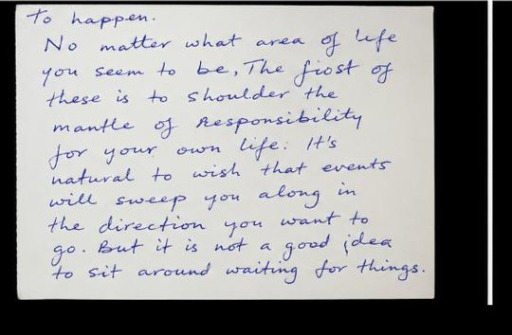 To happen.
No matter what area of life
you seem to be, The first of
these is to shoulder the
mantle of Responsibility
for your own life. It's
natural to wish that events
will sweep you along in
the direction you want to
go. But it is not a good idea
to sit around waiting for things.